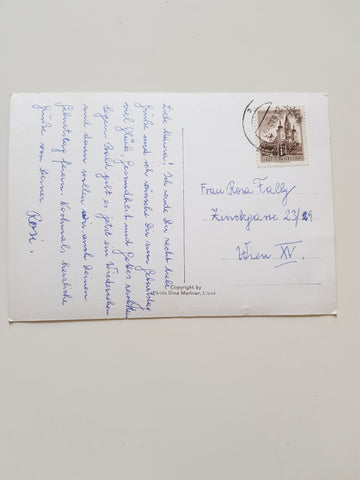 Liebe Mama! Ich sende Dir recht liebe
Grüße und ich wünsche Dir zum Geburtstag
viel Glück, Gesundheit und Gottes reichsten
Segen. Bald gibt es jetzt ein Wiedersehen
und dann wollen wir auch Deinen
Geburtstag feiern. Nochmals herzliche
Grüße von Deiner
Rosi.
Frau Rosa Fally
Zinckgasse 23/29
Wien XV.
Copyright by
Photo Dina Mariner, Lienz